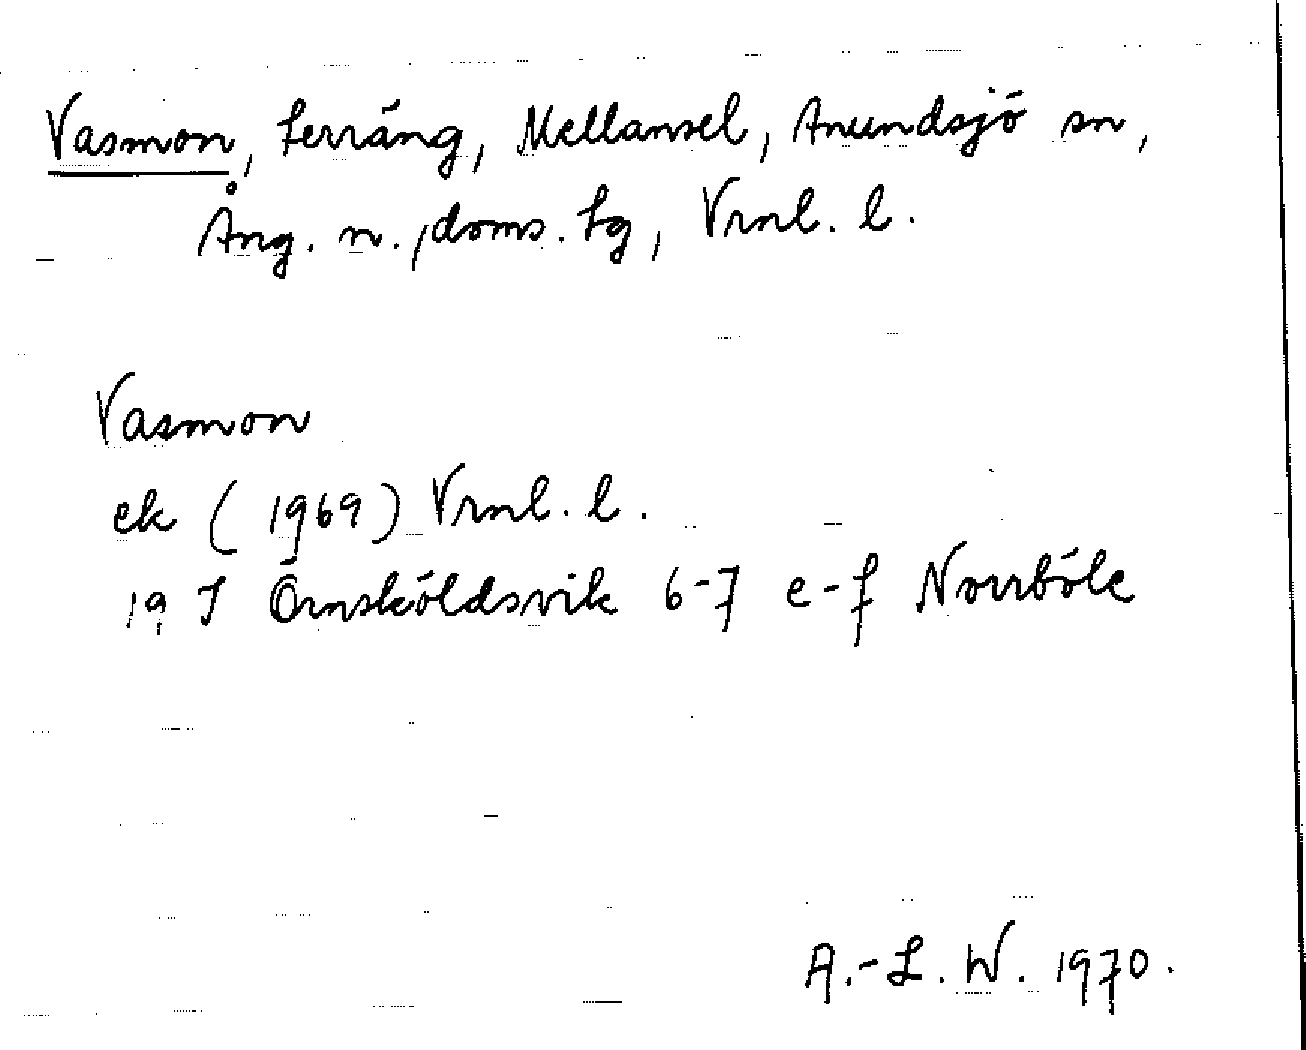 Vasmon, terräng, Mellansel, Anundsjö sn,
Ång. n., doms. tg, Vrml. l.
Vasmon
ek (1969) Vrml. l.
19 J Örnsköldsvik 6-7 e-f Norrböle
A.-L. W. 1970.